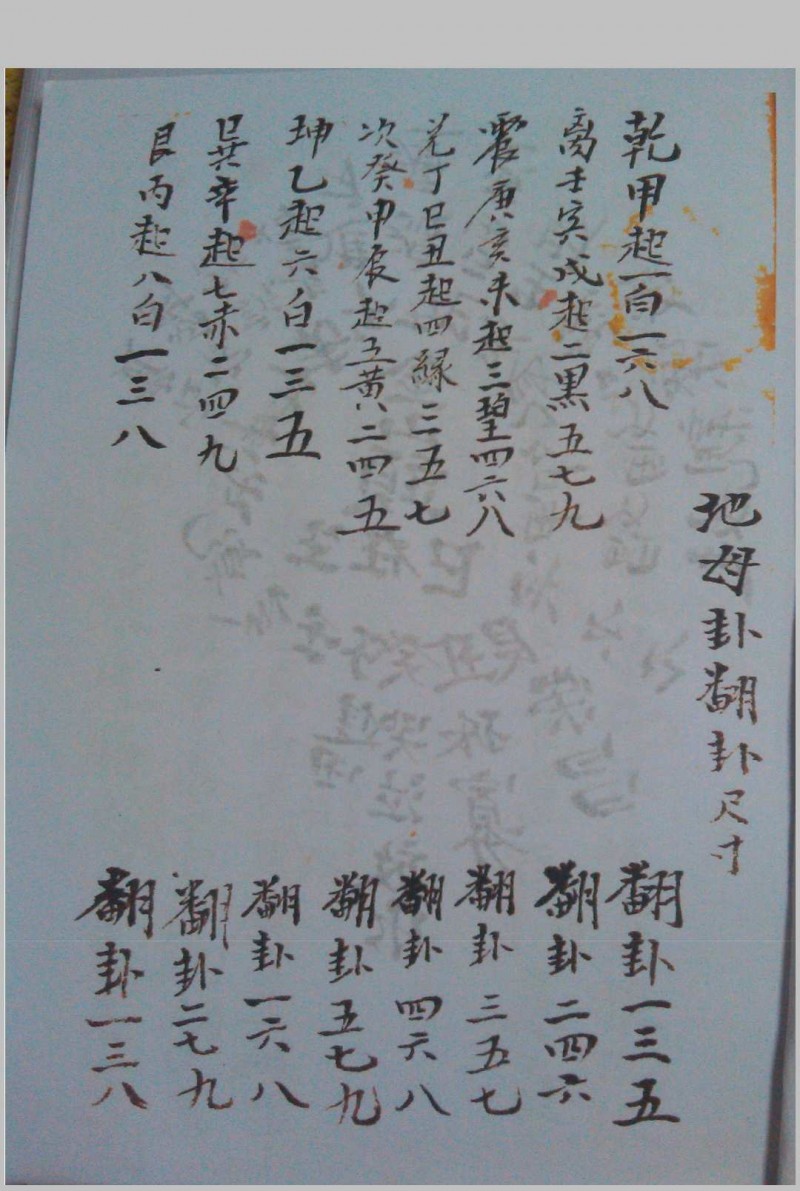 地母卦翻卦尺寸
乾甲起一白一六八
翻卦一三五
离壬寅戌起二黑五七九
翻卦二四六
震庚亥未起三碧四六八
翻卦三五七
兑丁巳丑起四緑三五七
翻卦四六八
次癸申辰起五黄二四五
翻卦五七九
坤乙起六白一三五
翻卦一六八
巽辛起七赤二四九
翻卦二七九
艮丙起八白一三八
翻卦一三八